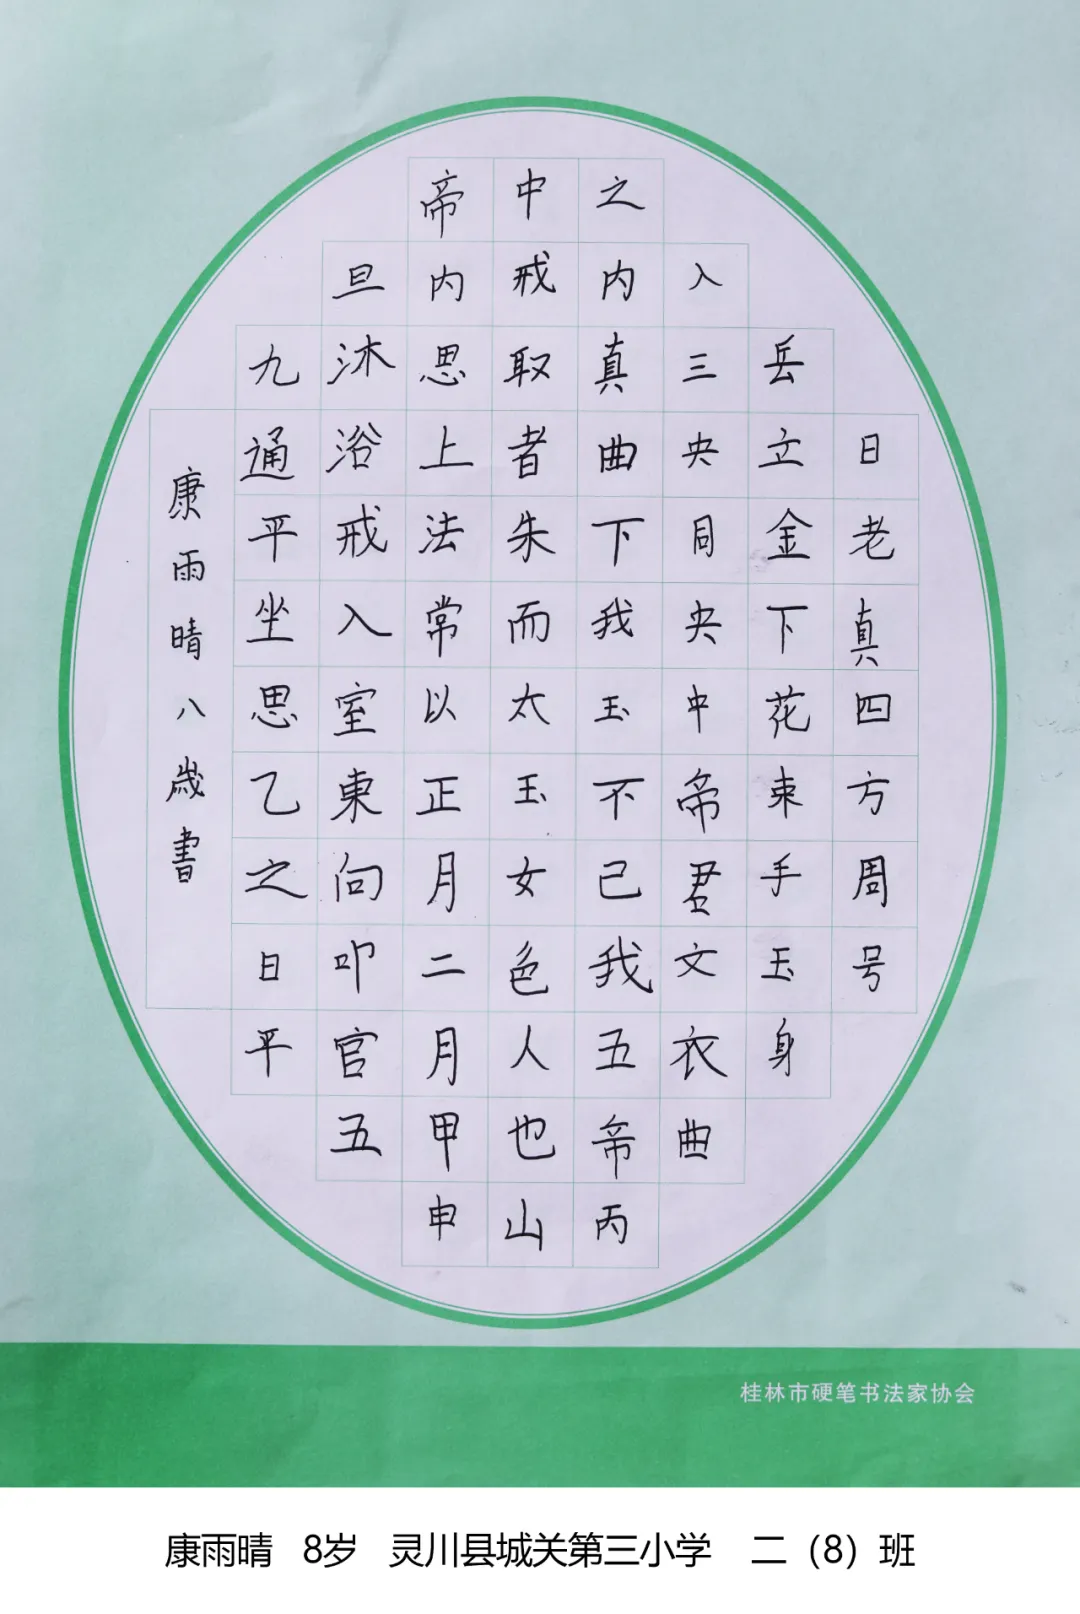 日老真四方周号
岳立金下花束手玉身
入三央同央中帝君文衣曲
之内真曲下我玉不己我五帝丙
中戒取者朱而太玉女色人也山
帝内思上法常以正月二月甲申
旦沐浴戒入室東向叩官五
九通平坐思乙之日平
康雨晴八歲書
桂林市硬笔书法家协会
康雨晴 8岁 灵川县城关第三小学 二（8）班